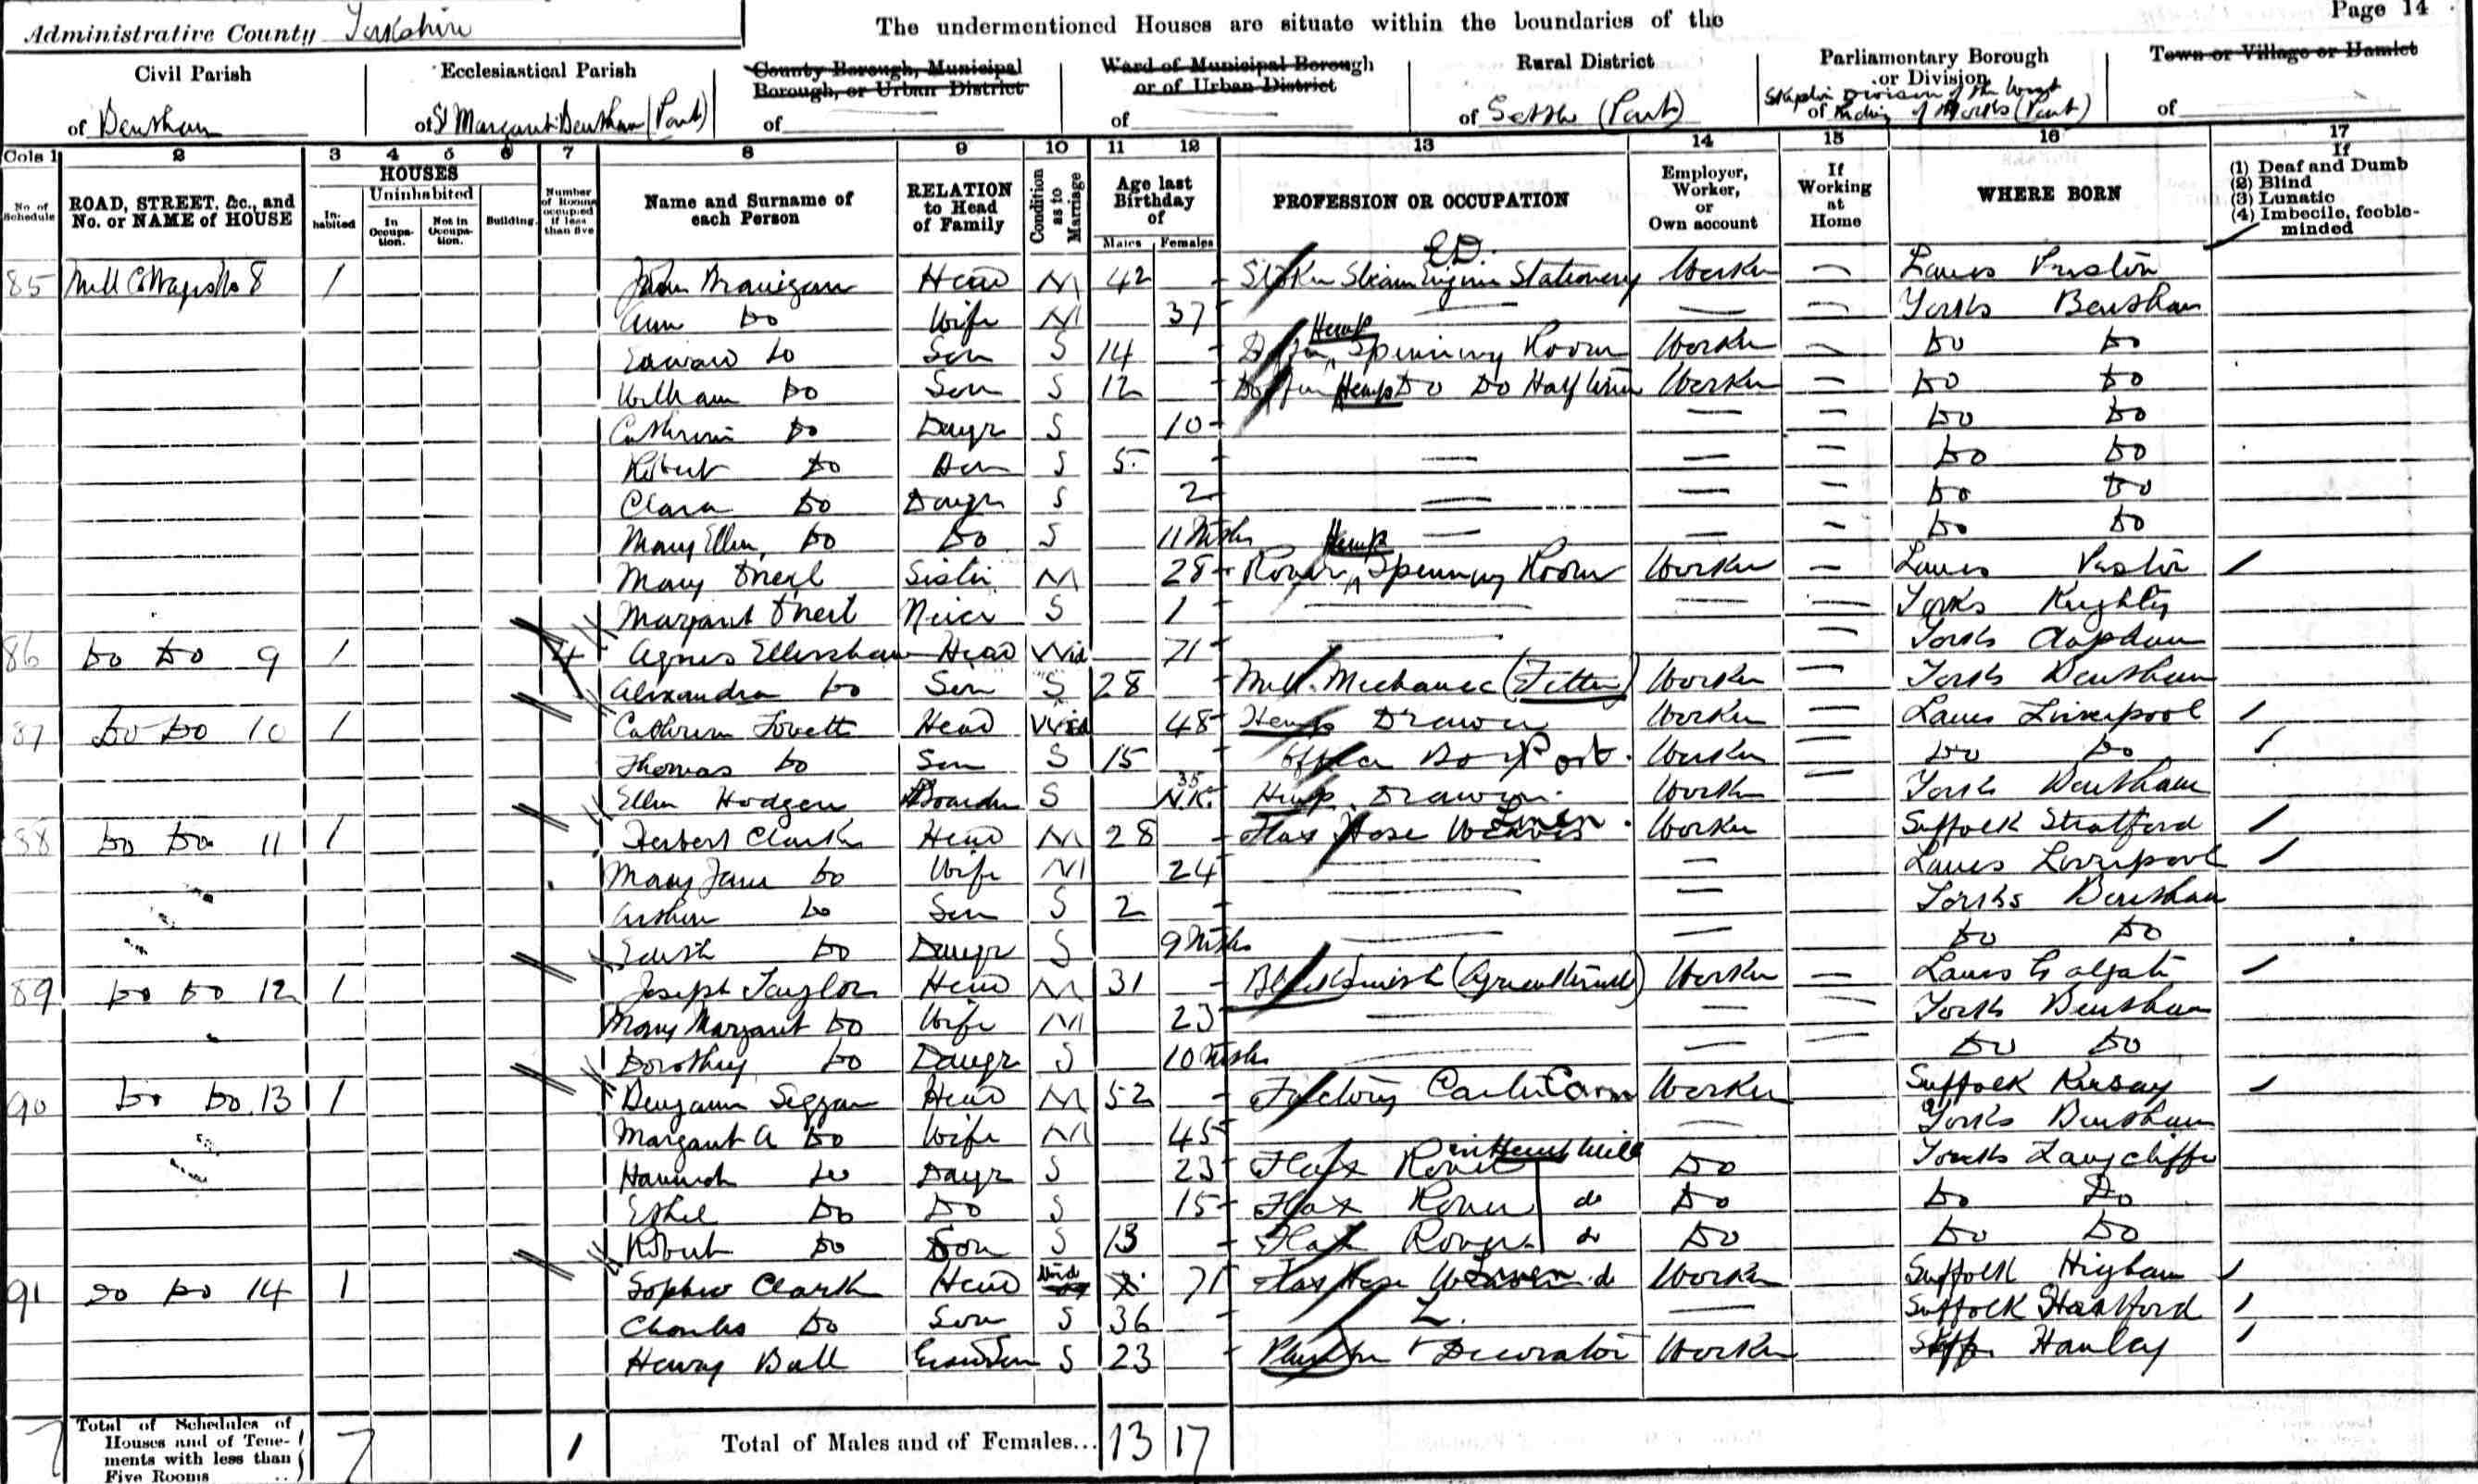 Page 14
Administrative County Yorkshire
The undermentioned Houses are situate within the boundaries of the
Civil Parish
of Bentham
Ecclesiastical Parish
of St Margaret Bentham (Part)
County Borough, Municipal Borough, or Urban District
of
Ward of Municipal Borough or of Urban District
of
Rural District
of Settle (Part)
Parliamentary Borough or Division
of Skipton Division of the West Riding of Yorks (Part)
Town or Village or Hamlet
of
Cols 1 2 3 4 5 6 7 8 9 10 11 12 13 14 15 16 17
No. of Schedule
ROAD, STREET, &c., and No. or NAME of HOUSE
HOUSES
Inhabited
Uninhabited
In Occupation.
Not in Occupation.
Building.
Number of Rooms occupied if less than five
Name and Surname of each Person
RELATION to Head of Family
Condition as to Marriage
Age last Birthday of
Males Females
PROFESSION OR OCCUPATION
Employer, Worker, or Own account
If Working at Home
WHERE BORN
If
(1) Deaf and Dumb
(2) Blind
(3) Lunatic
(4) Imbecile, feeble-minded
85 Mill Cottages No 8 1 John Branigan Head M 42 Stoker Steam Engine Stationery Worker — Lancs Preston
Ann Do Wife M 37 — — Yorks Bentham
Edward Do Son S 14 Doffer Hemp Spinning Room Worker — Do Do
William Do Son S 12 Doffer Hemp Do Do Half time Worker — Do Do
Catherine Do Daugr S 10 — — Do Do
Robert Do Son S 5 — — — Do Do
Clara Do Daugr S 2 — — — Do Do
Mary Ellen Do Do S 11 Mths — — — Do Do
Mary O'Neil Sister M 28 Rover Hemp Spinning Room Worker — Lancs Preston
Margaret O'Neil Niece S 1 — — — Yorks Keighley
86 Do Do 9 1 4 Agnes Ellershaw Head Wid 71 — — Yorks Clapham
Alexandra Do Son S 28 Mill Mechanic (Fitter) Worker — Yorks Bentham
87 Do Do 10 1 Catherine Lovett Head Wid 48 Hemp Drawer Worker — Lancs Liverpool
Thomas Do Son S 15 Office Boy Port. Worker — Do Do
Ellen Hodgen Boarder S 35 N.K. Hemp Drawer Worker — Yorks Bentham
88 Do Do 11 1 Herbert Clark Head M 28 Flax Hose Weaver Linen Worker Suffolk Stratford
Mary Jane Do Wife M 24 — — Lancs Liverpool
Arthur Do Son S 2 — — Yorks Bentham
Edith Do Daugr S 9 Mths — — Do Do
89 Do Do 12 1 Joseph Taylor Head M 31 Blacksmith (Agricultural) Worker — Lancs Galgate
Mary Margaret Do Wife M 23 — — — Yorks Bentham
Dorothy Do Daugr S 10 Mths — — — Do Do
90 Do Do 13 1 Benjamin Seggar Head M 52 Factory Carter Carm Worker Suffolk Kersey
Margaret A Do Wife M 45 — Yorks Bentham
Hannah Do Daugr S 23 Flax Rover in Hemp Mill Do Yorks Langcliffe
Ethel Do Do S 15 Flax Rover do Do Do Do
Robert Do Son S 13 Flax Rover do Do Do Do
91 Do Do 14 1 Sophia Clark Head Wid 71 Flax Hose Weaver Linen do Worker Suffolk Higham
Charles Do Son S 36 — Suffolk Stratford
Henry Ball Grandson S 23 Painter & Decorator Worker Staffs Hanley
7 Total of Schedules of Houses and of Tenements with less than Five Rooms 7 1 Total of Males and of Females... 13 17